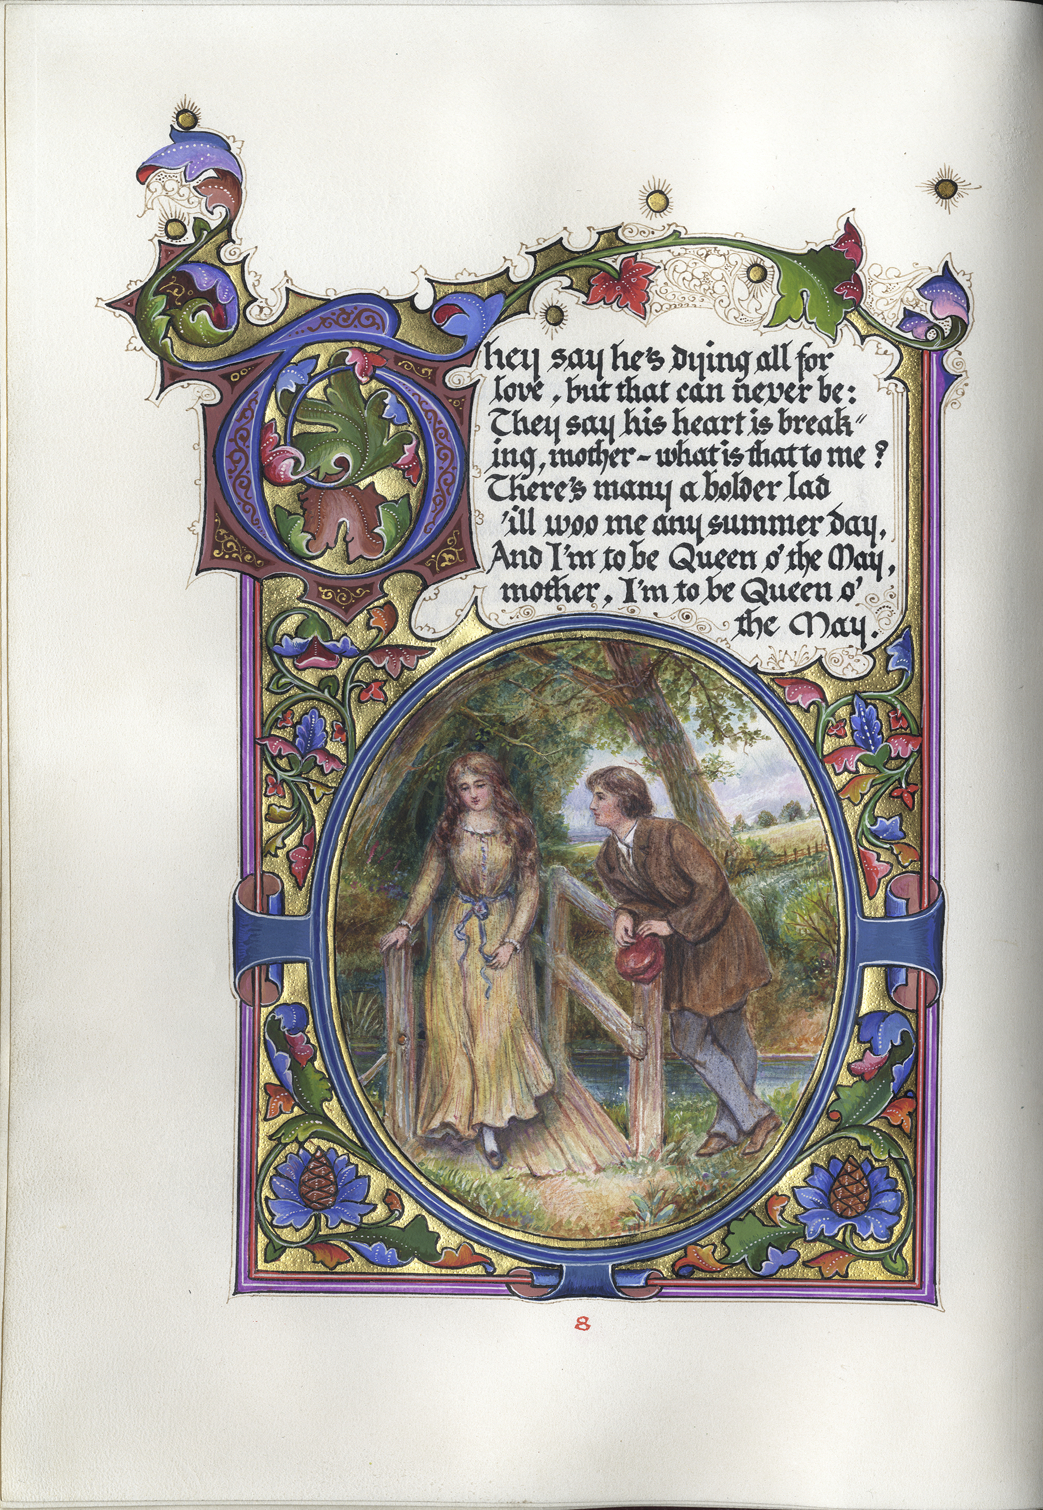 They say he's dying all for
love, but that can never be:
They say his heart is break"
ing, mother - what is that to me?
There's many a bolder lad
'ill woo me any summer day,
And I'm to be Queen o' the May,
mother, I'm to be Queen o'
the May.
8